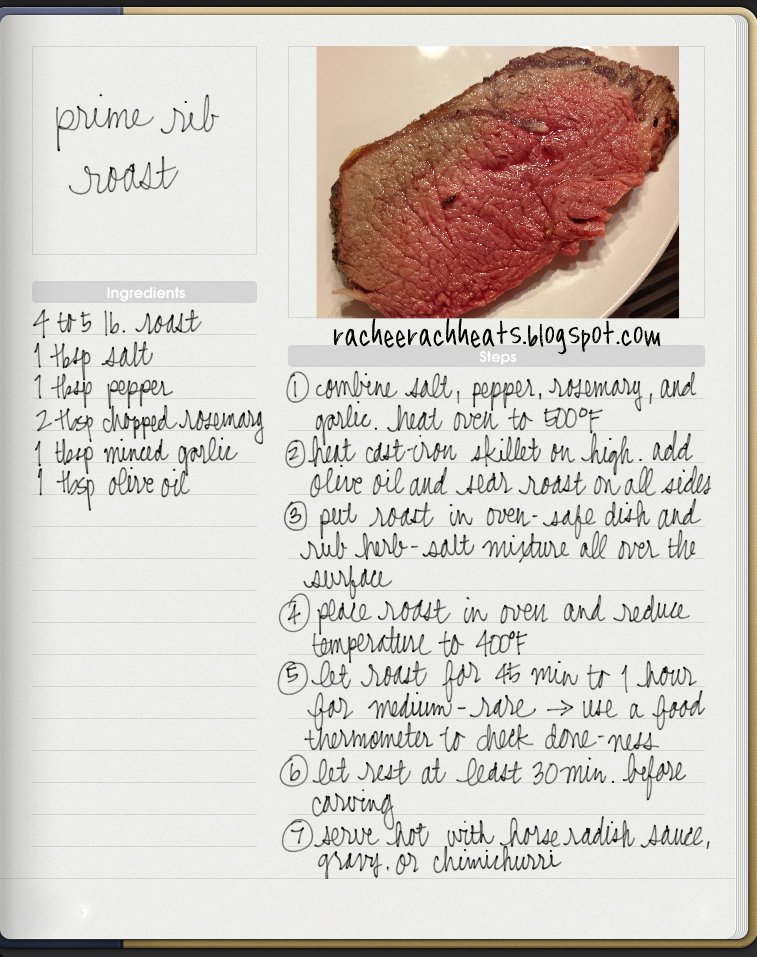 prime rib
roast
Ingredients
4 to 5 lb. roast
1 tbsp salt
1 tbsp pepper
2 tbsp chopped rosemary
1 tbsp minced garlic
1 tbsp olive oil
racheerachheats.blogspot.com
Steps
1 combine salt, pepper, rosemary, and
garlic. heat oven to 500°F
2 heat cast-iron skillet on high. add
olive oil and sear roast on all sides
3 put roast in oven-safe dish and
rub herb-salt mixture all over the
surface
4 place roast in oven and reduce
temperature to 400°F
5 let roast for 45 min to 1 hour
for medium-rare → use a food
thermometer to check done-ness
6 let rest at least 30 min. before
carving
7 serve hot with horse radish sauce,
gravy. or chimichurri